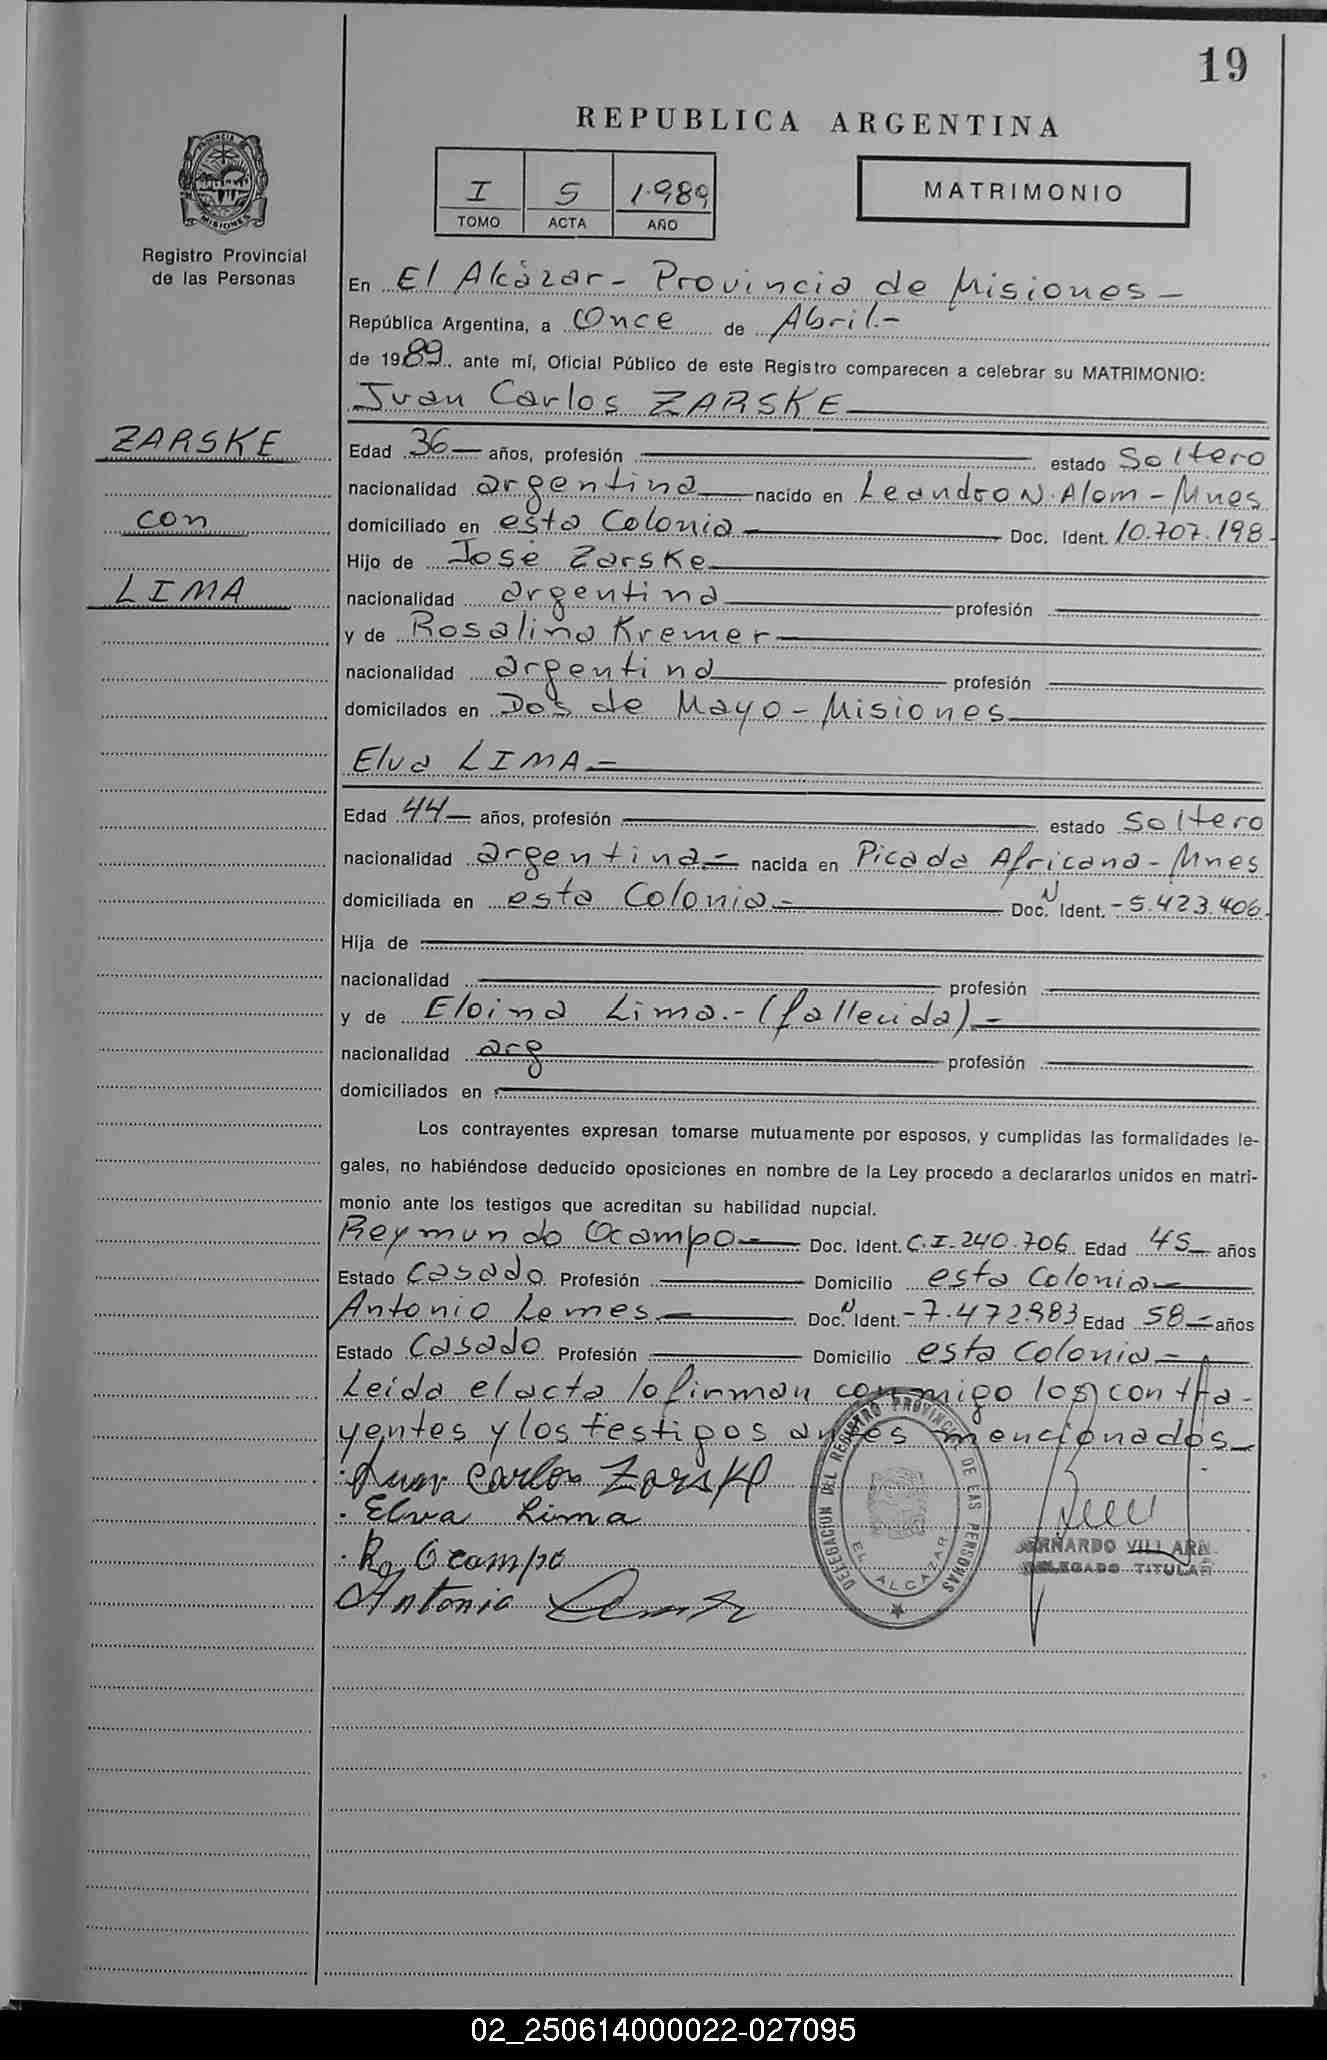 19
REPUBLICA ARGENTINA
I S 1.989
TOMO ACTA AÑO
MATRIMONIO
PROVINCIA MISIONES
Registro Provincial
de las Personas
En El Alcázar - Provincia de Misiones -
República Argentina, a Once de Abril.-
de 1989 ante mí, Oficial Público de este Registro comparecen a celebrar su MATRIMONIO:
Juan Carlos ZARSKE
ZARSKE
con
LIMA
Edad 36 años, profesión estado Soltero
nacionalidad argentina nacido en Leandro N. Alem - Mnes
domiciliado en esta Colonia Doc. Ident. 10.707.198.
Hijo de José Zarske
nacionalidad argentina profesión
y de Rosalina Kremer
nacionalidad argentina profesión
domicilados en Dos de Mayo - Misiones
Elva LIMA.-
Edad 44 años, profesión estado Soltero
nacionalidad argentina.- nacida en Picada Africana - Mnes
domiciliada en esta Colonia.- Doc. N Ident. - 5.423.406.
Hija de
nacionalidad profesión
y de Eloina Lima.- (fallecida).-
nacionalidad arg profesión
domiciliados en
Los contrayentes expresan tomarse mutuamente por esposos, y cumplidas las formalidades le-
gales, no habiéndose deducido oposiciones en nombre de la Ley procedo a declararlos unidos en matri-
monio ante los testigos que acreditan su habilidad nupcial.
Reymundo Ocampo.- Doc. Ident. C.I. 240.706 Edad 45 años
Estado Casado Profesión Domicilio esta Colonia
Antonio Lemes.- Doc. N Ident. - 7.472.983 Edad 58.- años
Estado Casado Profesión Domicilio esta Colonia.-
Leida el acta lo firman conmigo los contra-
yentes y los testigos antes mencionados
Juan Carlos Zarske
Elva Lima
R Ocampo
Antonio
DELEGACION DEL REGISTRO PROVINCIAL DE LAS PERSONAS
EL ALCAZAR
DELEGADO TITULAR
02_250614000022-027095